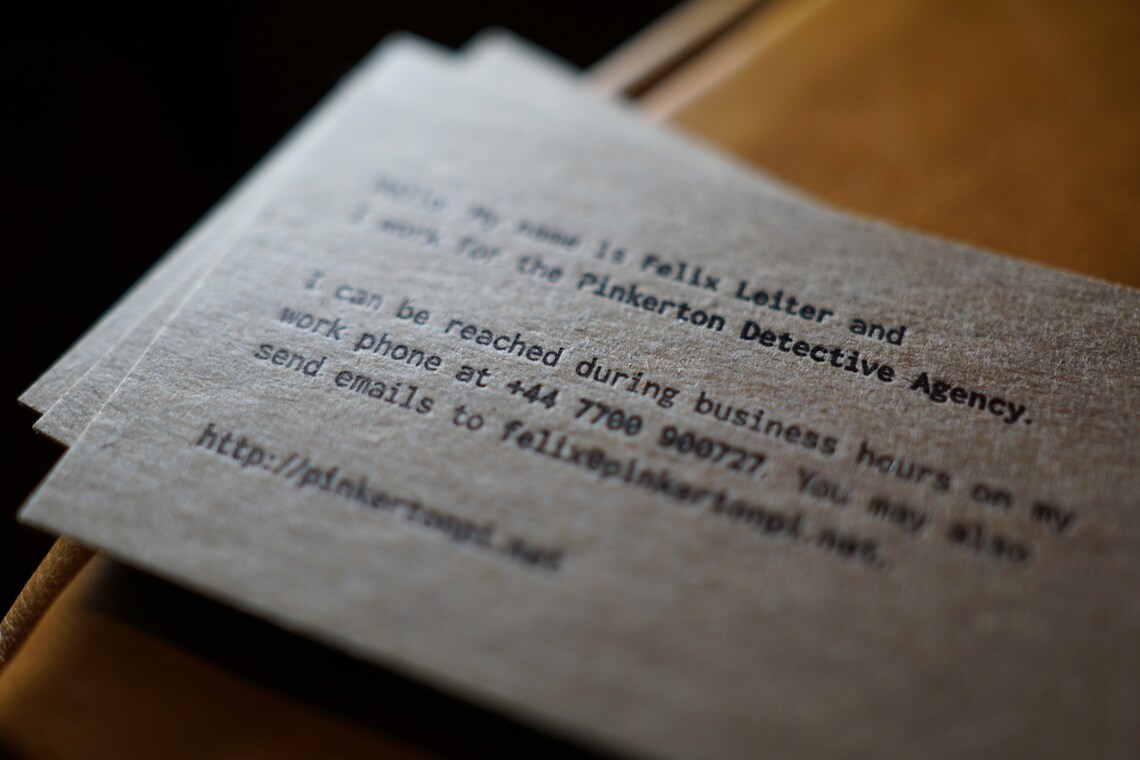 Hello. My name is Felix Leiter and
I work for the Pinkerton Detective Agency.
I can be reached during business hours on my
work phone at +44 7700 900727. You may also
send emails to felix@pinkertonpi.net.
http://pinkertonpi.net